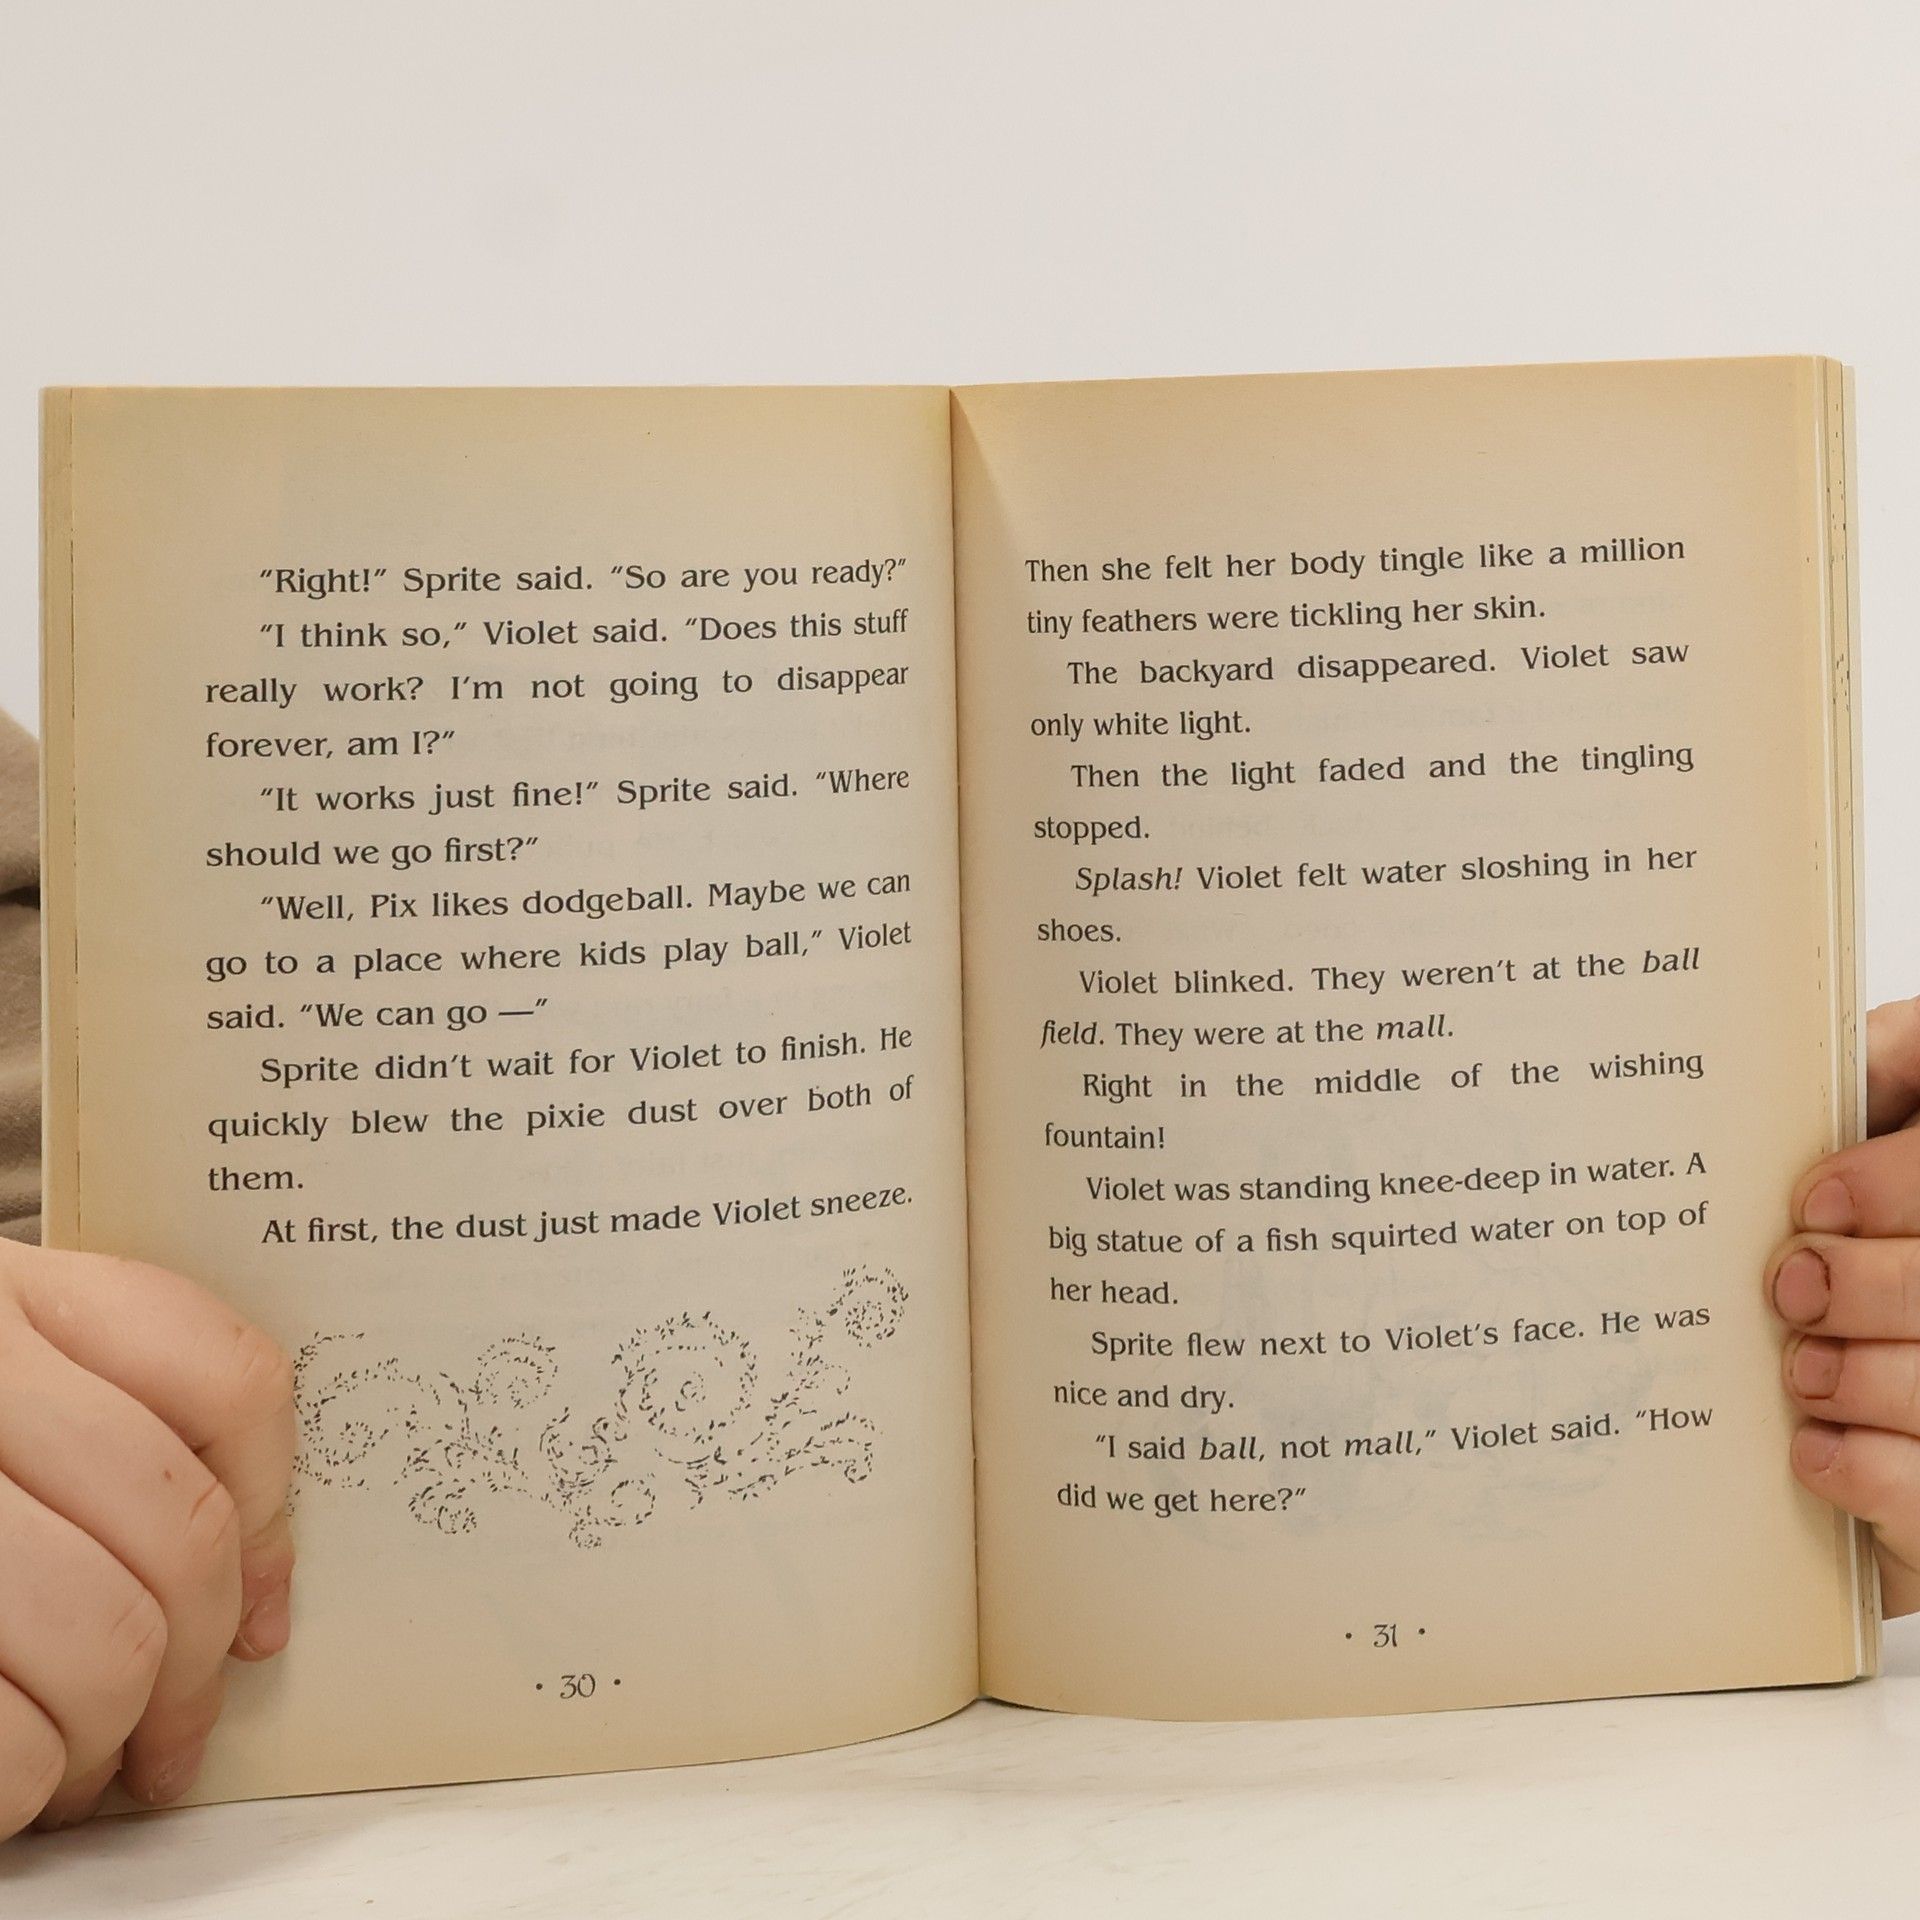 "Right!" Sprite said. "So are you ready?"
"I think so," Violet said. "Does this stuff
really work? I'm not going to disappear
forever, am I?"
"It works just fine!" Sprite said. "Where
should we go first?"
"Well, Pix likes dodgeball. Maybe we can
go to a place where kids play ball," Violet
said. "We can go —"
Sprite didn't wait for Violet to finish. He
quickly blew the pixie dust over both of
them.
At first, the dust just made Violet sneeze.
• 30 •
Then she felt her body tingle like a million
tiny feathers were tickling her skin.
The backyard disappeared. Violet saw
only white light.
Then the light faded and the tingling
stopped.
Splash! Violet felt water sloshing in her
shoes.
Violet blinked. They weren't at the ball
field. They were at the mall.
Right in the middle of the wishing
fountain!
Violet was standing knee-deep in water. A
big statue of a fish squirted water on top of
her head.
Sprite flew next to Violet's face. He was
nice and dry.
"I said ball, not mall," Violet said. "How
did we get here?"
• 31 •